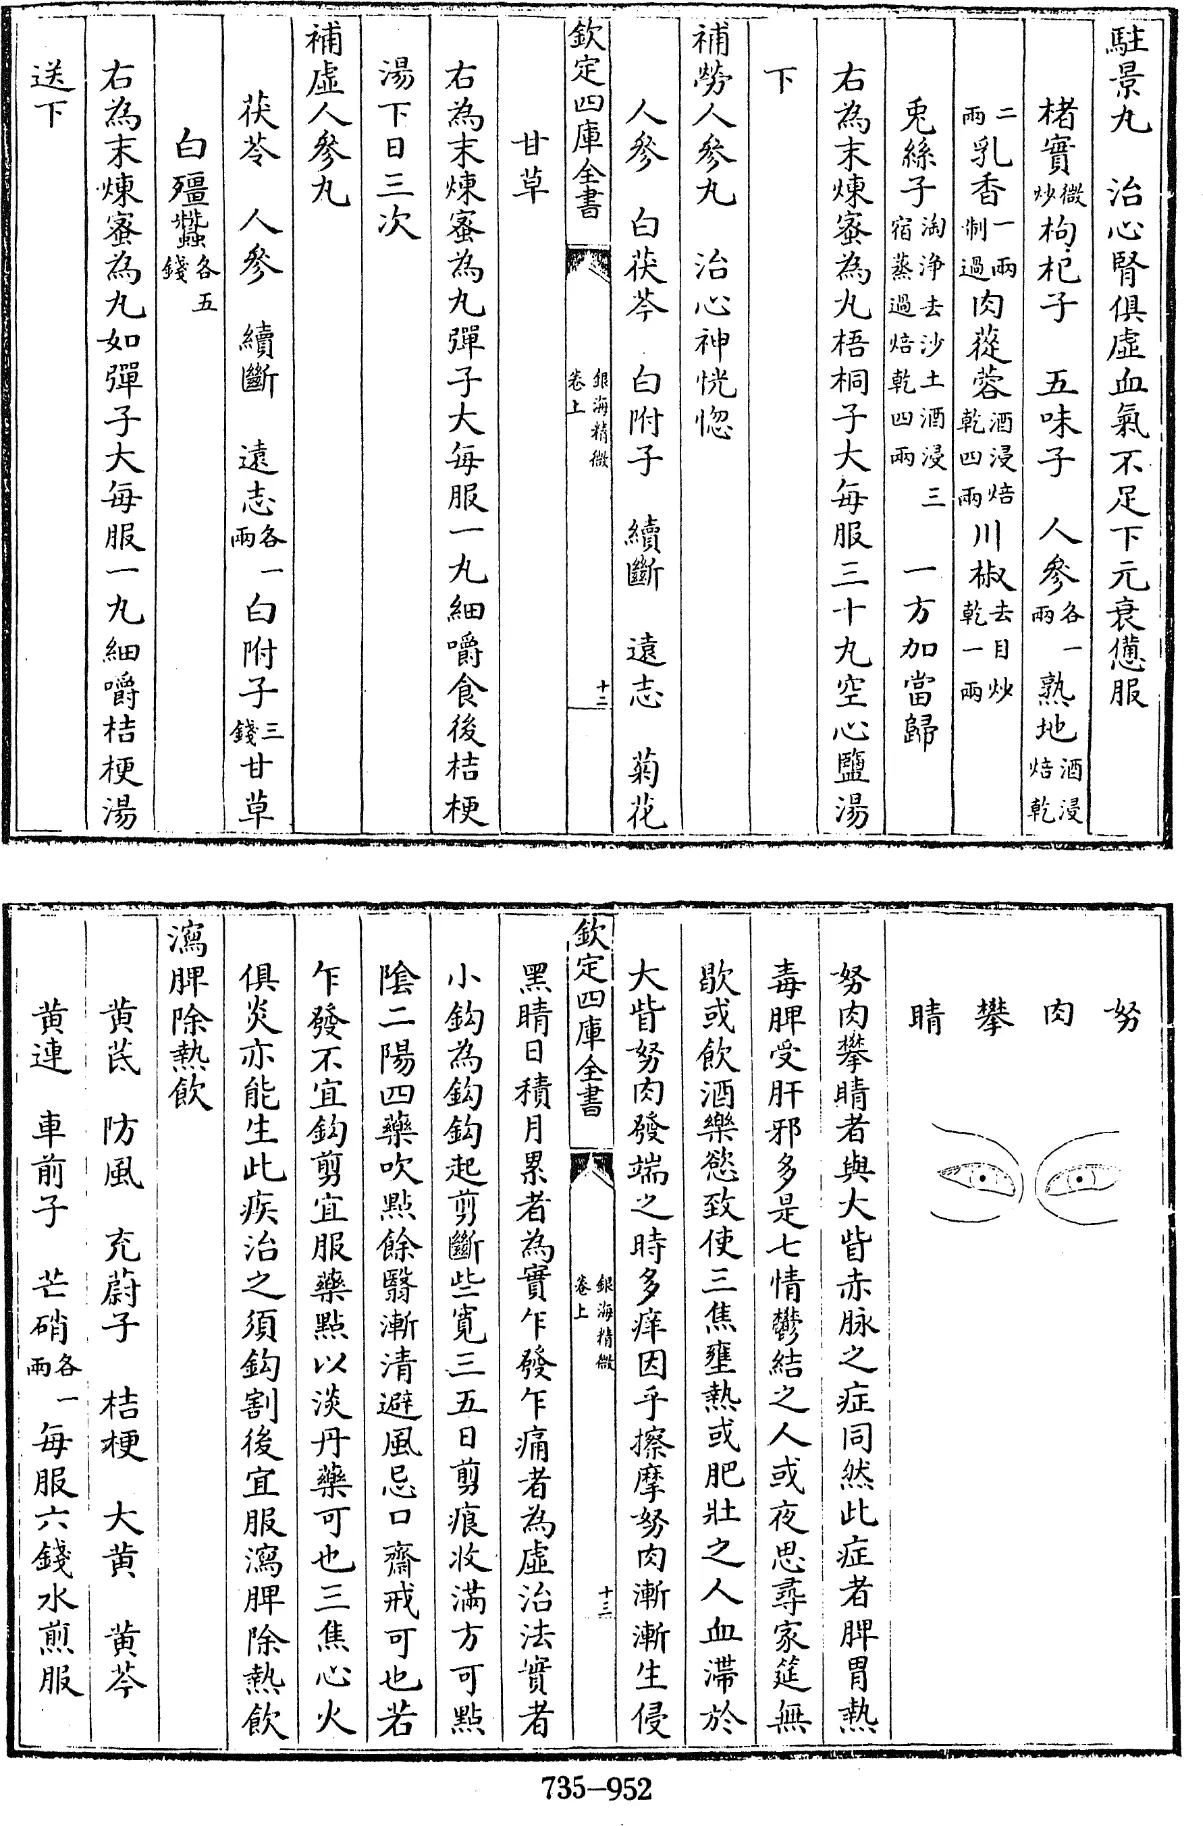 駐景丸　治心腎俱虛血氣不足下元衰憊服
楮實微炒枸杞子　五味子　人參各一兩熟地酒浸焙乾
二兩乳香一兩制過肉蓯蓉酒浸焙乾四兩川椒去目炒乾一兩
兎絲子淘浄去沙土酒浸三宿蒸過焙乾四兩　一方加當歸
右為末煉蜜為丸梧桐子大每服三十丸空心鹽湯
下
補勞人參丸　治心神恍惚
人參　白茯苓　白附子　續斷　遠志　菊花
欽定四庫全書　銀海精微卷上　十二
甘草
右為末煉蜜為丸彈子大每服一丸細嚼食後桔梗
湯下日三次
補虛人參丸
茯苓　人參　續斷　遠志各一兩白附子三錢甘草
白殭蠶各五錢
右為末煉蜜為丸如彈子大每服一丸細嚼桔梗湯
送下
努肉攀睛
努肉攀睛者與大眥赤脉之症同然此症者脾胃熱
毒脾受肝邪多是七情鬱結之人或夜思尋家筵無
歇或飲酒樂慾致使三焦壅熱或肥壯之人血滯於
大眥努肉發端之時多痒因乎擦摩努肉漸漸生侵
欽定四庫全書　銀海精微卷上　十三
黑睛日積月累者為實乍發乍痛者為虛治法實者
小鈎為鈎鈎起剪斷些寬三五日剪痕收滿方可點
陰二陽四藥吹點餘翳漸清避風忌口齋戒可也若
乍發不宜鈎剪宜服藥點以淡丹藥可也三焦心火
俱炎亦能生此疾治之須鈎割後宜服瀉脾除熱飲
瀉脾除熱飲
黄芪　防風　充蔚子　桔梗　大黄　黄芩
黄連　車前子　芒硝各一兩每服六錢水煎服
735–952